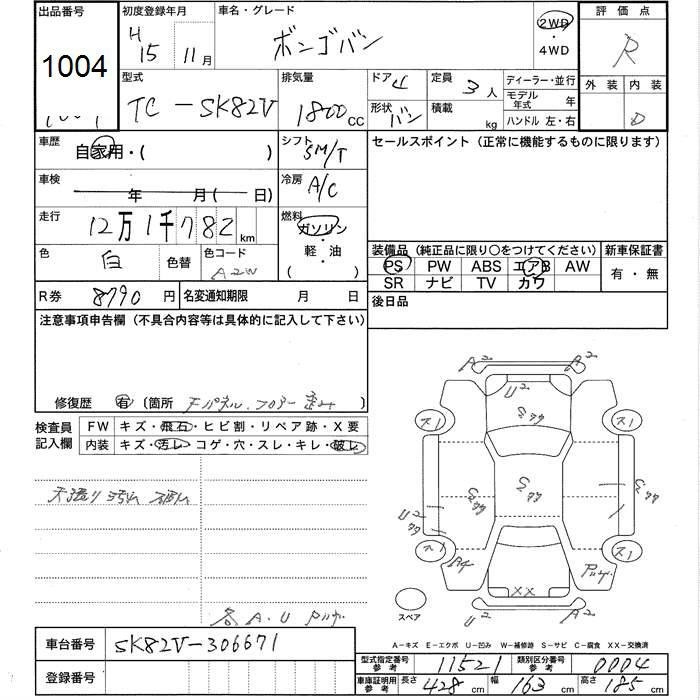 出品番号 初度登録年月 車名・グレード 評価点
1004 H 15 11月 ボンゴバン 2WD・4WD R
型式 排気量 ドア 4 定員 3人 ディーラー・並行 外装 内装
TC-SK82V 1800cc 形状 バン 積載 kg モデル年式 年 D
ハンドル 左・右
車歴 自家用・( ) シフト 5M/T セールスポイント(正常に機能するものに限ります)
車検 年 月( 日) 冷房 A/C
走行 12万1千782km 燃料 ガソリン
軽・油
( )
色 白 色替 色コード A2W
装備品(純正品に限り○をつけてください) 新車保証書
PS PW ABS エアB AW 有・無
SR ナビ TV カワ
R券 8790円 名変通知期限 月 日 後日品
注意事項申告欄(不具合内容等は具体的に記入して下さい)
修復歴 有 〔箇所 フロアー
検査員記入欄 FW キズ・飛石・ヒビ割・リペア跡・X要
内装 キズ・汚レ・コゲ・穴・スレ・キレ・破レ
各A.U
A2 A2
U2
S77
ス1 ス1
S77 S77 S77
U2
77
ス1 ス1
A4
XX
スペア U2 A2
A-キズ E-エクボ U-凹み W-補修跡 S-サビ C-腐食 XX-交換済
車台番号 SK82V-306671
登録番号
型式指定番号 参考 11521 類別区分番号 参考 0004
車庫証明用 参考 長さ 428cm 幅 163cm 高さ 185cm